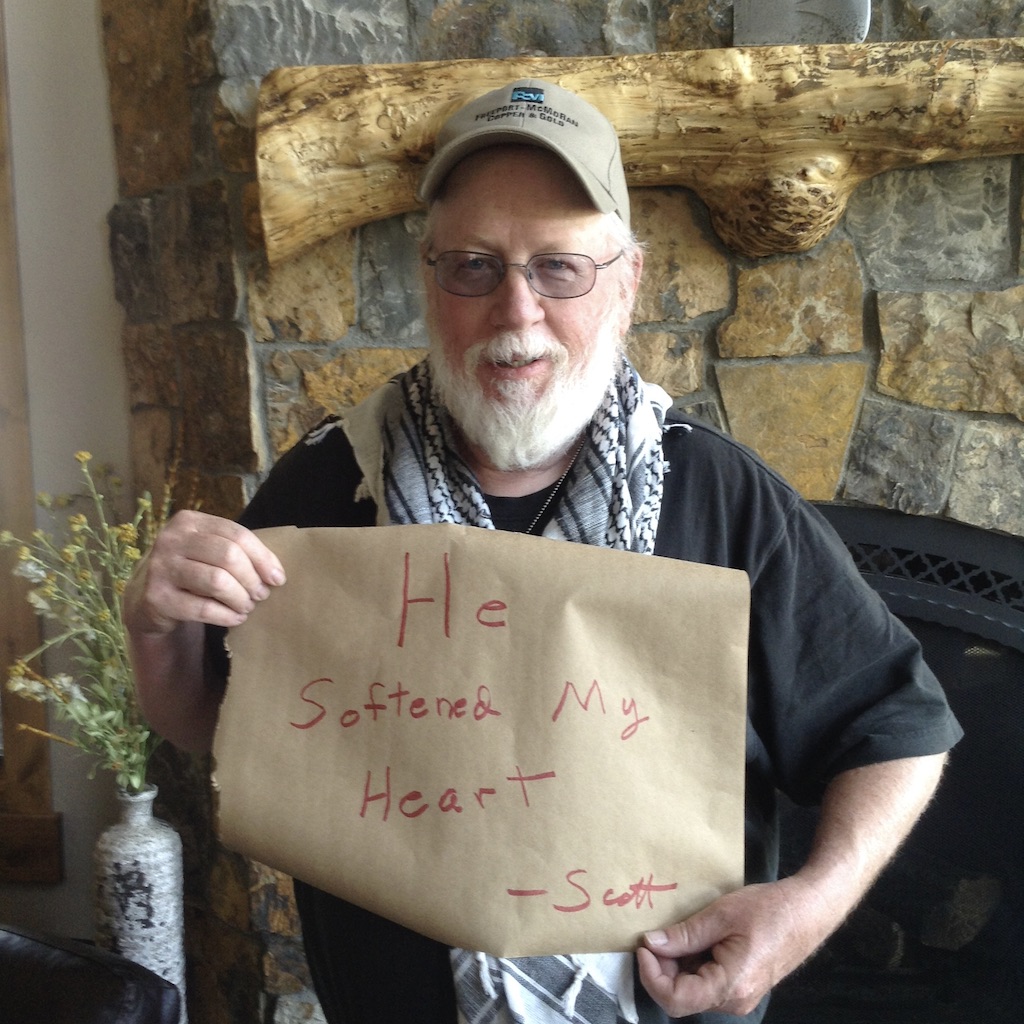 FCX
FREEPORT-MCMORAN
COPPER & GOLD
He
Softened My
Heart
- Scott